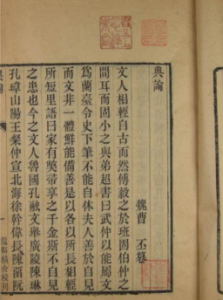 典論
魏曹 丕譔
文人相輕自古而然傅毅之於班固伯仲之
間耳而固小之與弟超書曰武仲以能屬文
爲蘭臺令史下筆不能自休夫人善於自見
而文非一體鮮能備善是以各以所長相輕
所短里語曰家有敝帚享之千金斯不自見
之患也今之文人魯國孔融文舉廣陵陳琳
孔璋山陽王粲仲宣北海徐幹偉長陳留阮